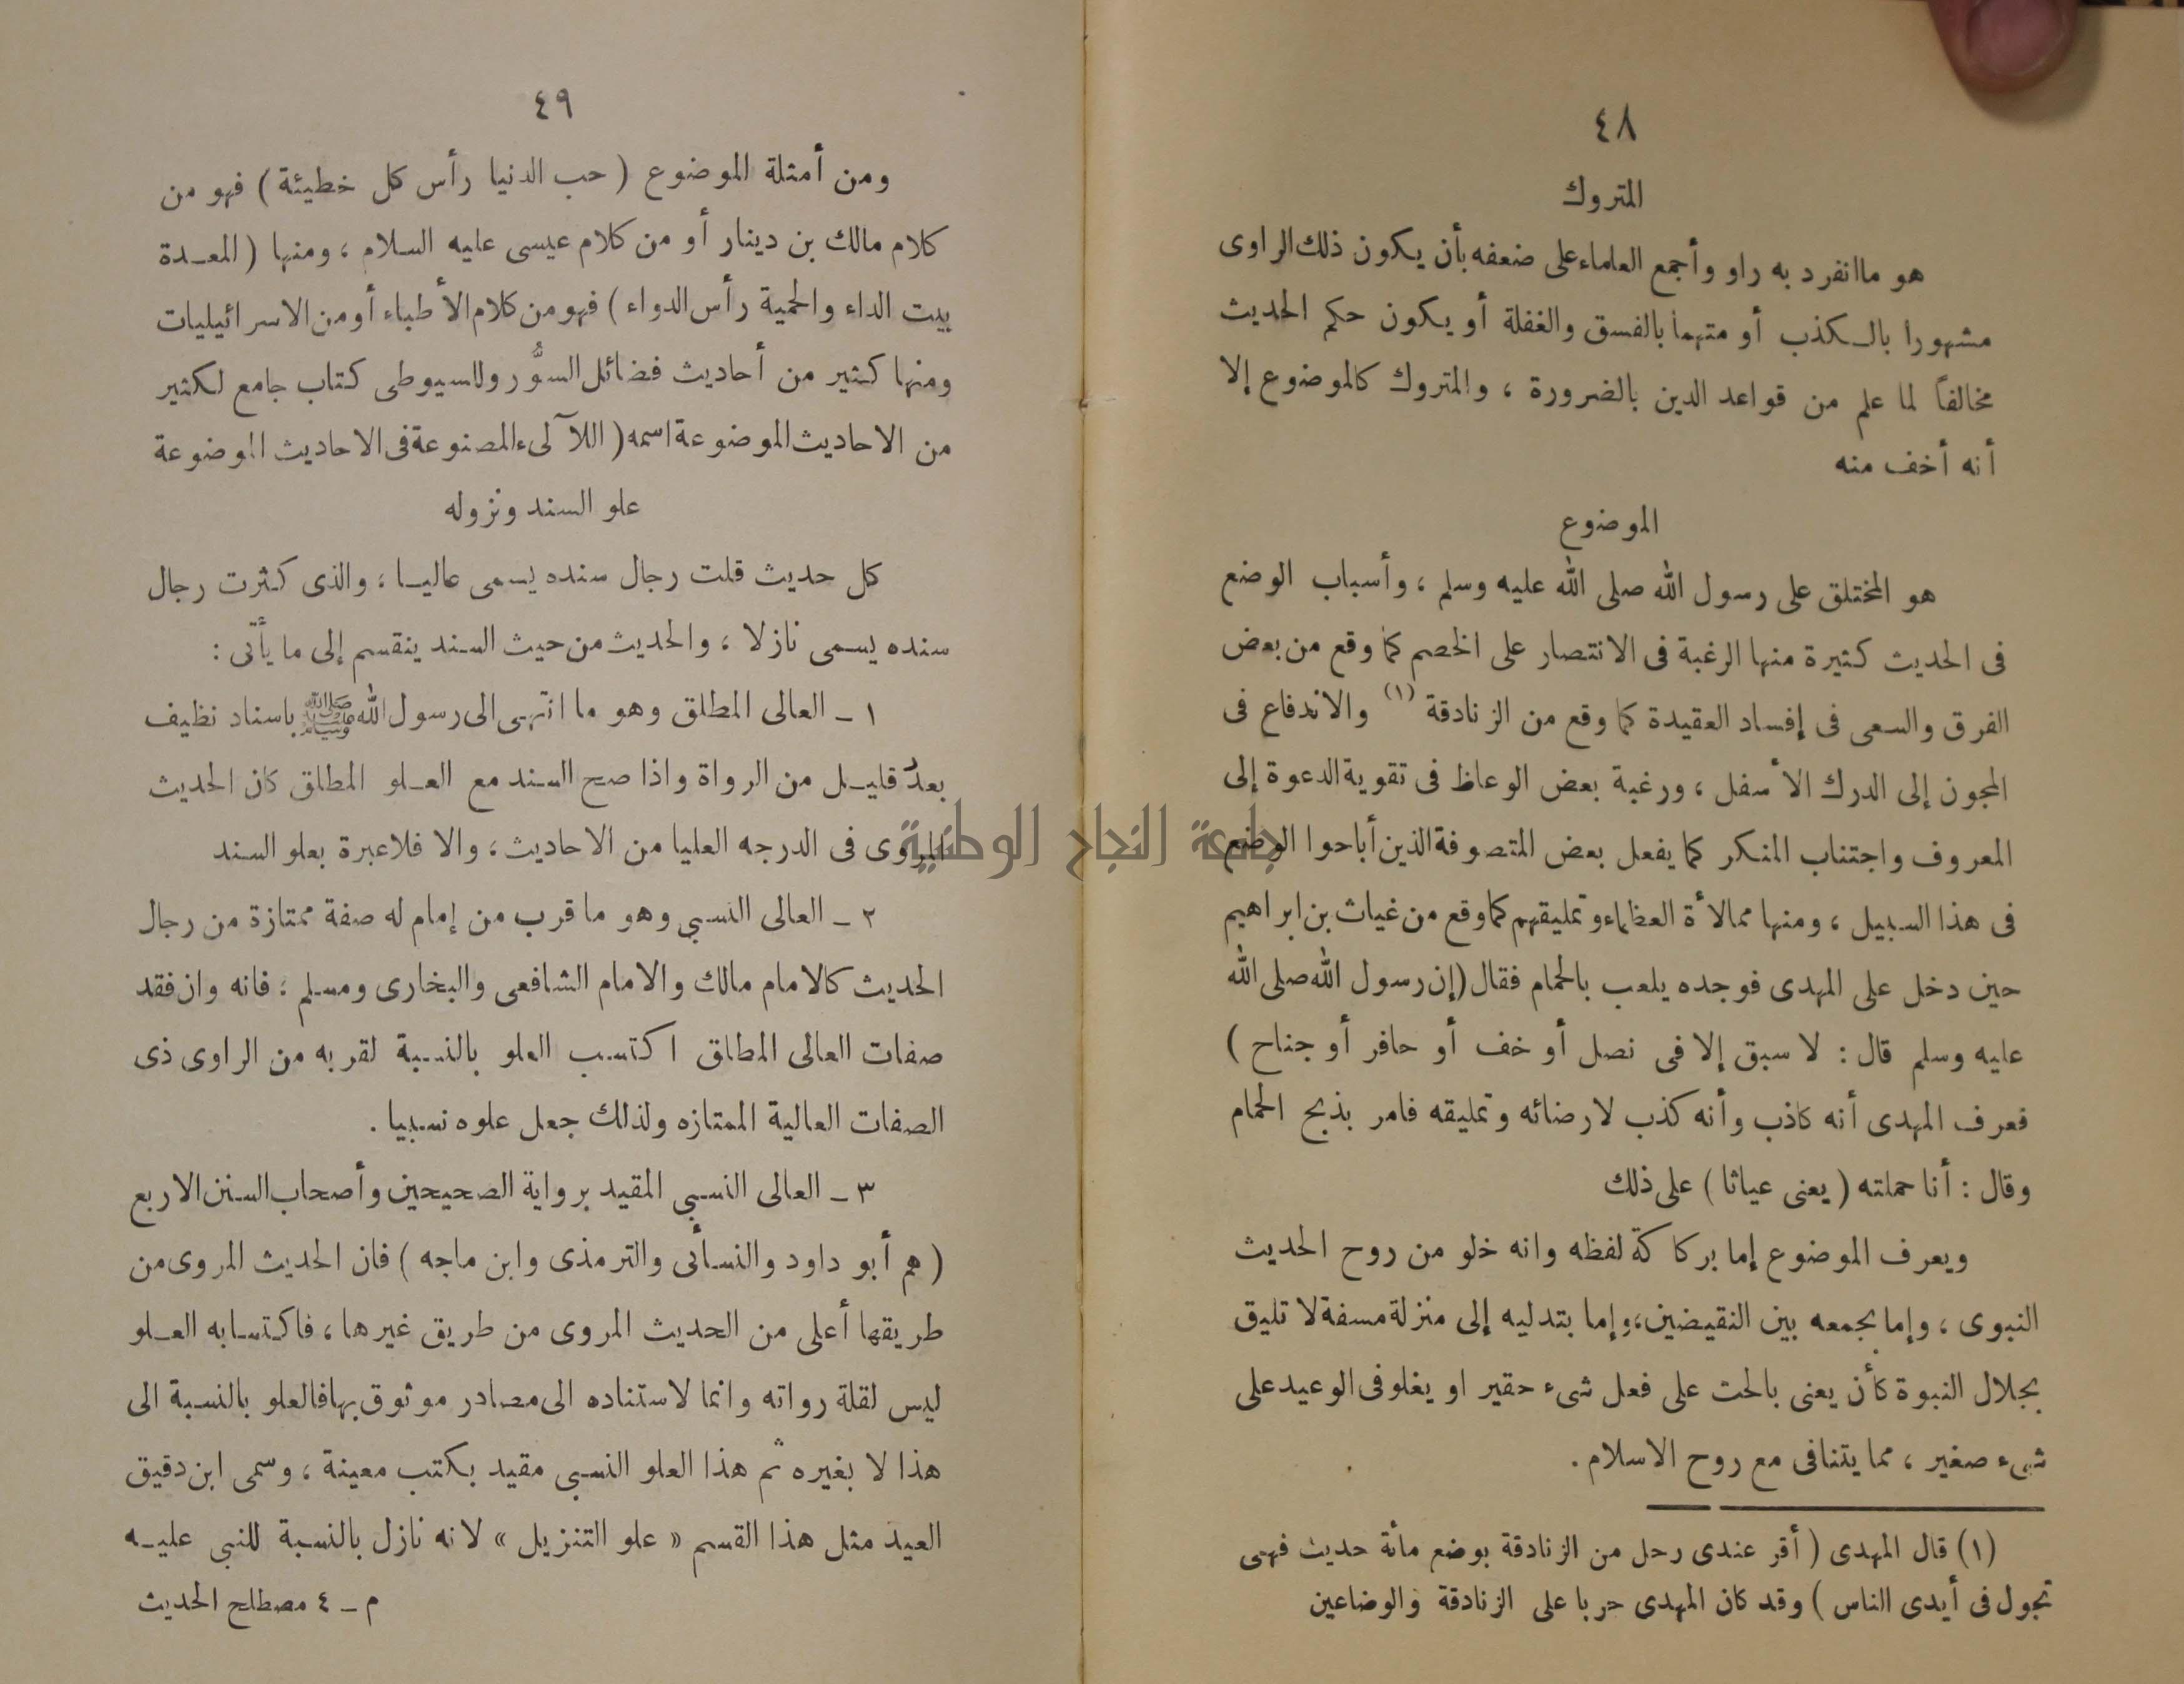 ٤٨
المتروك
هو ماانفرد به راو وأجمع العلماء على ضعفه بأن يكون ذلك الراوى
مشهورا بالكذب أو متهما بالفسق والغفلة أو يكون حكم الحديث
مخالفاً لما علم من قواعد الدين بالضرورة ، والمتروك كالموضوع إلا
أنه أخف منه
الموضوع
هو المختلق على رسول الله صلى الله عليه وسلم ، وأسباب الوضع
فى الحديث كثيرة منها الرغبة فى الانتصار على الخصم كما وقع من بعض
الفرق والسعى فى إفساد العقيدة كما وقع من الزنادقة (١) والاندفاع فى
المجون إلى الدرك الأسفل ، ورغبة بعض الوعاظ فى تقوية الدعوة إلى
المعروف واجتناب المنكر كما يفعل بعض المتصوفة الذين أباحوا الوضع
فى هذا السبيل ، ومنها ممالأة العظماء وتمليقهم كما وقع من غياث بن ابراهيم
حين دخل على المهدى فوجده يلعب بالحمام فقال (إن رسول الله صلى الله
عليه وسلم قال : لا سبق إلا فى نصل أو خف أو حافر أو جناح )
فعرف المهدى أنه كاذب وأنه كذب لارضائه وتمليقه فامر بذبح الحمام
وقال : أنا حملته ( يعنى عياثا ) على ذلك
ويعرف الموضوع إما بركاكة لفظه وانه خلو من روح الحديث
النبوى ، وإما بجمعه بين النقيضين، وإما بتدليه إلى منزلة مسفة لا تليق
بجلال النبوة كأن يعنى بالحث على فعل شىء حقير او يغلو فى الوعيد على
شىء صغير ، مما يتنافى مع روح الاسلام .
(١) قال المهدى ( أقر عندى رحل من الزنادقة بوضع مائة حديث فهى
تجول فى أيدى الناس ) وقد كان المهدى حربا على الزنادقة والوضاعين
٤٩
ومن أمثلة الموضوع ( حب الدنيا رأس كل خطيئة ) فهو من
كلام مالك بن دينار أو من كلام عيسى عليه السلام ، ومنها ( المعدة
بيت الداء والحمية رأس الدواء ) فهو من كلام الأطباء أو من الاسرائيليات
ومنها كثير من أحاديث فضائل السُّور وللسيوطى كتاب جامع لكثير
من الاحاديث الموضوعة اسمه ( اللآلىء المصنوعة فى الاحاديث الموضوعة
علو السند ونزوله
كل حديث قلت رجال سنده يسمى عاليا ، والذى كثرت رجال
سنده يسمى نازلا ، والحديث من حيث السند ينقسم إلى ما يأتى :
١ - العالى المطلق وهو ما انتهى الى رسول الله ﷺ باسناد نظيف
بعدُ قليل من الرواة واذا صح السند مع العلو المطلق كان الحديث
المروى فى الدرجه العليا من الاحاديث ، والا فلا عبرة بعلو السند
٢ - العالى النسبي وهو ما قرب من إمام له صفة ممتازة من رجال
الحديث كالامام مالك والامام الشافعى والبخارى ومسلم ، فانه وان فقد
صفات العالى المطلق اكتسب العلو بالنسبة لقربه من الراوى ذى
الصفات العالية الممتازه ولذلك جعل علوه نسبيا .
٣ - العالى النسبي المقيد برواية الصحيحين وأصحاب السنن الاربع
( هم أبو داود والنسائى والترمذى وابن ماجه ) فان الحديث المروى من
طريقها أعلى من الحديث المروى من طريق غيرها ، فاكتسابه العلو
ليس لقلة رواته وانما لاستناده الى مصادر موثوق بها فالعلو بالنسبة الى
هذا لا بغيره ثم هذا العلو النسبي مقيد بكتب معينة ، وسمى ابن دقيق
العيد مثل هذا القسم « علو التنزيل » لانه نازل بالنسبة للنبي عليه
م - ٤ مصطلح الحديث
جامعة النجاح الوطنية